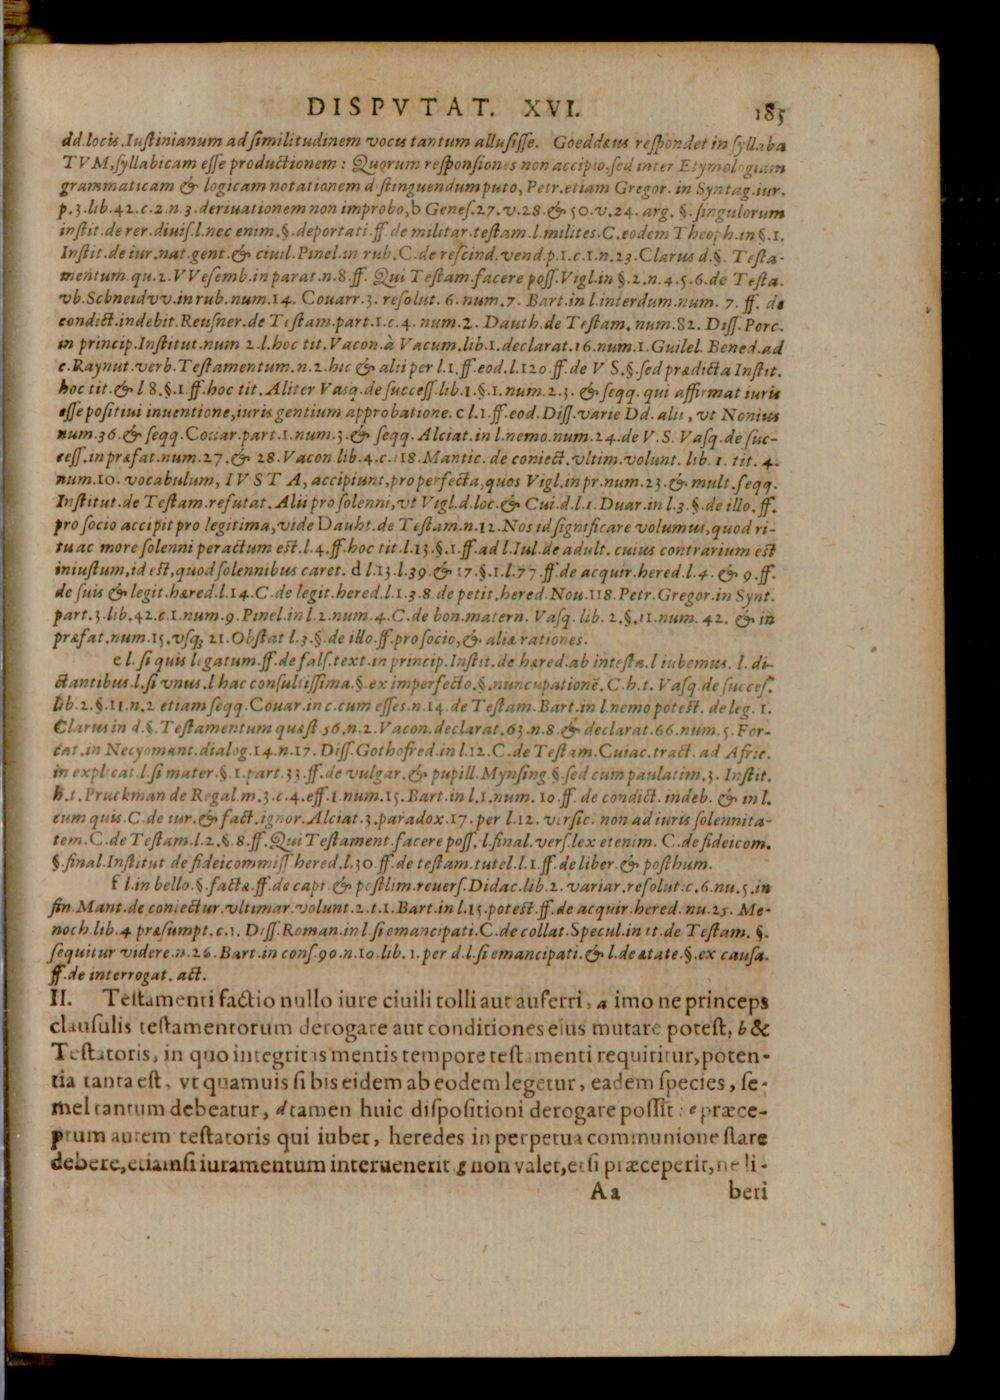 DISPVTAT. XVI. 185
dd.locis.Iustinianum ad similitudinem vocis tantum allusisse. Goeddæus respondet in syllaba
TVM,syllabicam esse productionem: Quorum responsiones non accipio,sed inter Etymologiam
grammaticam & logicam notationem d stinguendum puto, Petr.etiam Gregor. in Syntag.iur.
p.3.lib.42.c.2.n.3.deriuationem non improbo,b Genes.27.v.28.& 50.v.24. arg. §.singulorum
instit.de rer.diuis.l.nec enim.§.deportati.ff.de militar.testam.l.milites.C.eodem Theoph.in §.1.
Instit.de iur.nat.gent.& ciuil.Pinel.in rub.C.de rescind.vend.p.1.c.1.n.23.Clarus d.§. Testa-
mentum.qu.2.VVesemb.in parat.n.8.ff. Qui Testam.facere poss.Vigl.in §.2.n.4.5.6.de Testa.
vb.Schneidvv.in rub.num.14. Couarr.3. resolut. 6.num.7. Bart.in l.interdum.num. 7. ff. de
condict.indebit.Reusner.de Testam.part.1.c.4. num.2. Dauth.de Testam.num.82. Diss.Porc.
in princip.Institut.num 2.l.hoc tit.Vacon.à Vacum.lib.1.declarat.16.num.1.Guilel. Bened.ad
c.Raynut.verb.Testamentum.n.2.hic & alii per l.1.ff.eod.l.120.ff.de V S.§.sed prædicta Instit.
hoc tit.& l 8.§.1.ff.hoc tit. Aliter Vasq.de success.lib.1.§.1.num.2.3. & seqq. qui affirmat iuris
esse positiui inuentione,iuris gentium approbatione. c l.1.ff.eod.Diss.varie Dd. alii, vt Nonius
num.36.& seqq.Couar.part.1.num.3.& seqq. Alciat.in l.nemo.num.24.de V.S. Vasq.de suc-
cess.in præfat.num.27.& 28.Vacon lib.4.c.118.Mantic. de coniect.vltim.volunt. lib. 1. tit. 4.
num.10. vocabulum, IVSTA, accipiunt,pro perfecta,quos Vigl.in pr.num.23.& mult.seqq.
Institut.de Testam.refutat. Alii pro solenni,vt Vigl.d.loc.& Cui.d.l.1.Duar.in l.3.§.de illo.ff.
pro socio accipit pro legitima,vide Dauht.de Testam.n.12.Nos id significare volumus,quod ri-
tu ac more solenni peractum est.l.4.ff.hoc tit.l.13.§.1.ff.ad l.Iul.de adult. cuius contrarium est
iniustum,id est,quod solennibus caret. d l.13.l.39.& 17.§.1.l.77.ff.de acquir.hered.l.4.& 9.ff.
de suis & legit.hæred.l.14.C.de legit.hered.l.1.3.8.de petit.hered.Nou.118.Petr.Gregor.in Synt.
part.3.lib.42.c.1.num.9.Pinel.in l.2.num.4.C.de bon.matern. Vasq. lib. 2.§.11.num. 42. & in
præfat.num.15.vsq; 21.Obstat l.3.§.de illo.ff.pro socio,& aliæ rationes.
e l.si quis legatum.ff.de fals.text.in princip.Instit.de hæred.ab intesta.l iubemus. l. di-
ctantibus.l.si vnus.l hac consultissima.§.ex imperfecto.§.nuncupationẽ.C.h.t. Vasq.de succes.
lib.2.§.11.n.2 etiam seqq.Couar.in c.cum esses.n.14.de Testam.Bart.in l.nemo potest. de leg. 1.
Clarus in d.§.Testamentum quæst 56.n.2.Vacon.declarat.63.n.8.& declarat.66.num.5.For-
cat.in Necyomant.dialog.14.n.17.Diss.Gothofred.in l.12.C.de Testam.Cuiac.tract. ad Afric.
in explicat.l.si mater.§.1.part.33.ff.de vulgar.& pupill.Mynsing.§.sed cum paulatim.3. Instit.
h.t.Pruckman de Regal.m.3.c.4.eff.1.num.15.Bart.in l.1.num. 10.ff. de condict. indeb. & in l.
cum quis.C.de iur.& fact.ignor.Alciat.3.paradox.17. per l.12. versic. non ad iuris solennita-
tem.C.de Testam.l.2.§.8.ff.Qui Testament.facere poss.l.final.vers.lex etenim. C.de fideicom.
§.final.Institut de fideicommiss hered.l.30.ff.de testam.tutel.l.1.ff.de liber.& posthum.
f l.in bello.§.factæ.ff.de capt.& postlim.reuers.Didac.lib.2.variar.resolut.c.6.nu.5.in
fin.Mant.de coniectur.vltimar.volunt.2.t.1.Bart.in l.15.potest.ff.de acquir.hered. nu.25. Me-
noch.lib.4 præsumpt.c.1. Diss.Roman.in l.si emancipati.C.de collat.Specul.in tt.de Testam. §.
sequitur videre.n.26.Bart.in cons.90.n.10.lib. 1.per d.l.si emancipati.& l.de ætate.§.ex causa.
ff.de interrogat. act.
II. Testamenti factio nullo iure ciuili tolli aut auferri, a imo ne princeps
clausulis testamentorum derogare aut conditiones eius mutare potest, b &
Testatoris, in quo integritas mentis tempore testamenti requiritur,poten-
tia tanta est, vt quamuis si bis eidem ab eodem legetur, eadem species, se-
mel tantum debeatur, d tamen huic dispositioni derogare possit: e præce-
ptum autem testatoris qui iubet, heredes in perpetua communione stare
debere,etiamsi iuramentum interuenerit g non valet,etsi præceperit,ne li-
Aa beri